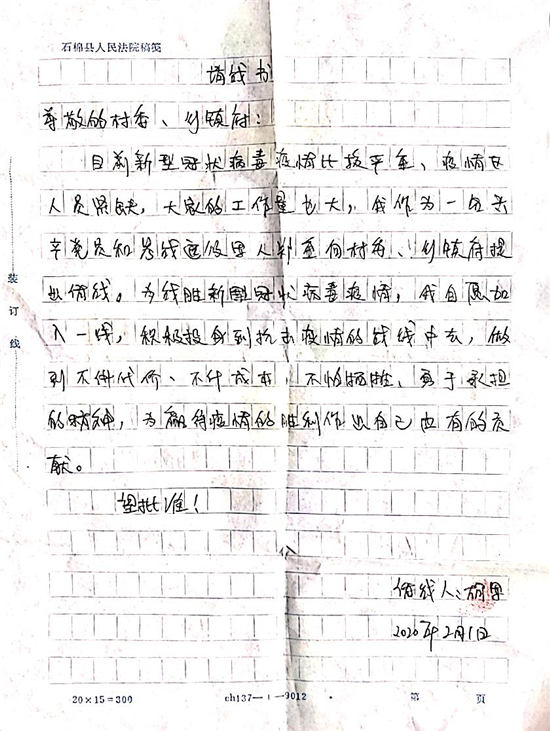 石棉县人民法院稿笺
请战书
尊敬的村委、乡镇府：
目前新型冠状病毒疫情比较严重、疫情
人员紧缺，大家的工作量也大，我作为一名
党员和 退役军人 向村委、乡镇府提
出请战。为战胜新型冠状病毒疫情，我自愿加
入一线，积极投身到抗击疫情的战线中去，做
到不件代价、不计成本，不怕牺牲、勇于承担
的精神，为赢得疫情的胜利作出自己应有的贡
献。
望批准！
请战人：
2020年2月1日
装订线
20×15=300
ch137—1—9012
第 页